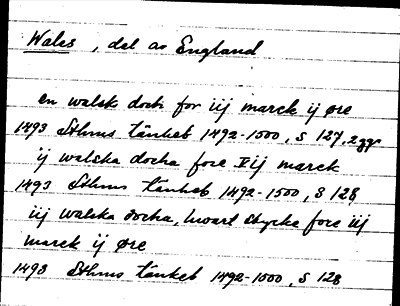 Wales, del av England
en walsk doch for iij marck ij øre
1493 Sthms tänkeb 1492-1500, s 127, 2 ggr
ij walska docha fore Vij marck
1493 Sthms tänkeb 1492-1500, s 128
iij walska docha, hwart stycke fore iij
marck ij øre
1493 Sthms tänkeb 1492-1500, s 128